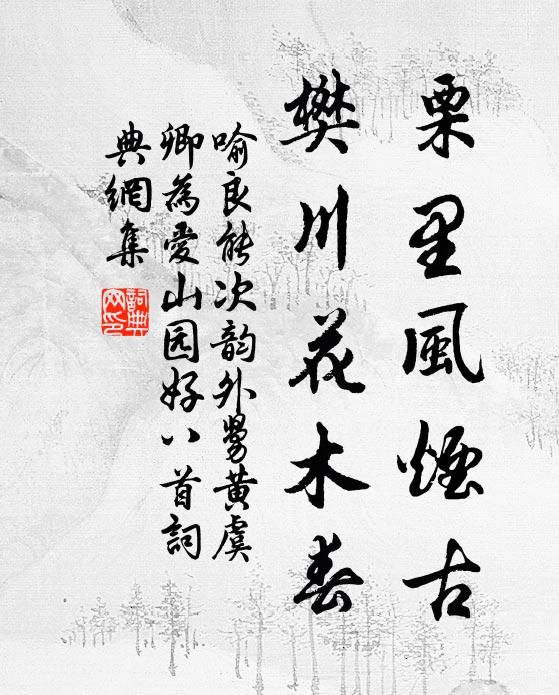 栗里風煙古
樊川花木春
喻良能次韵外舅黃虞
卿為愛山园好八首詞
典網集
詞典
网印